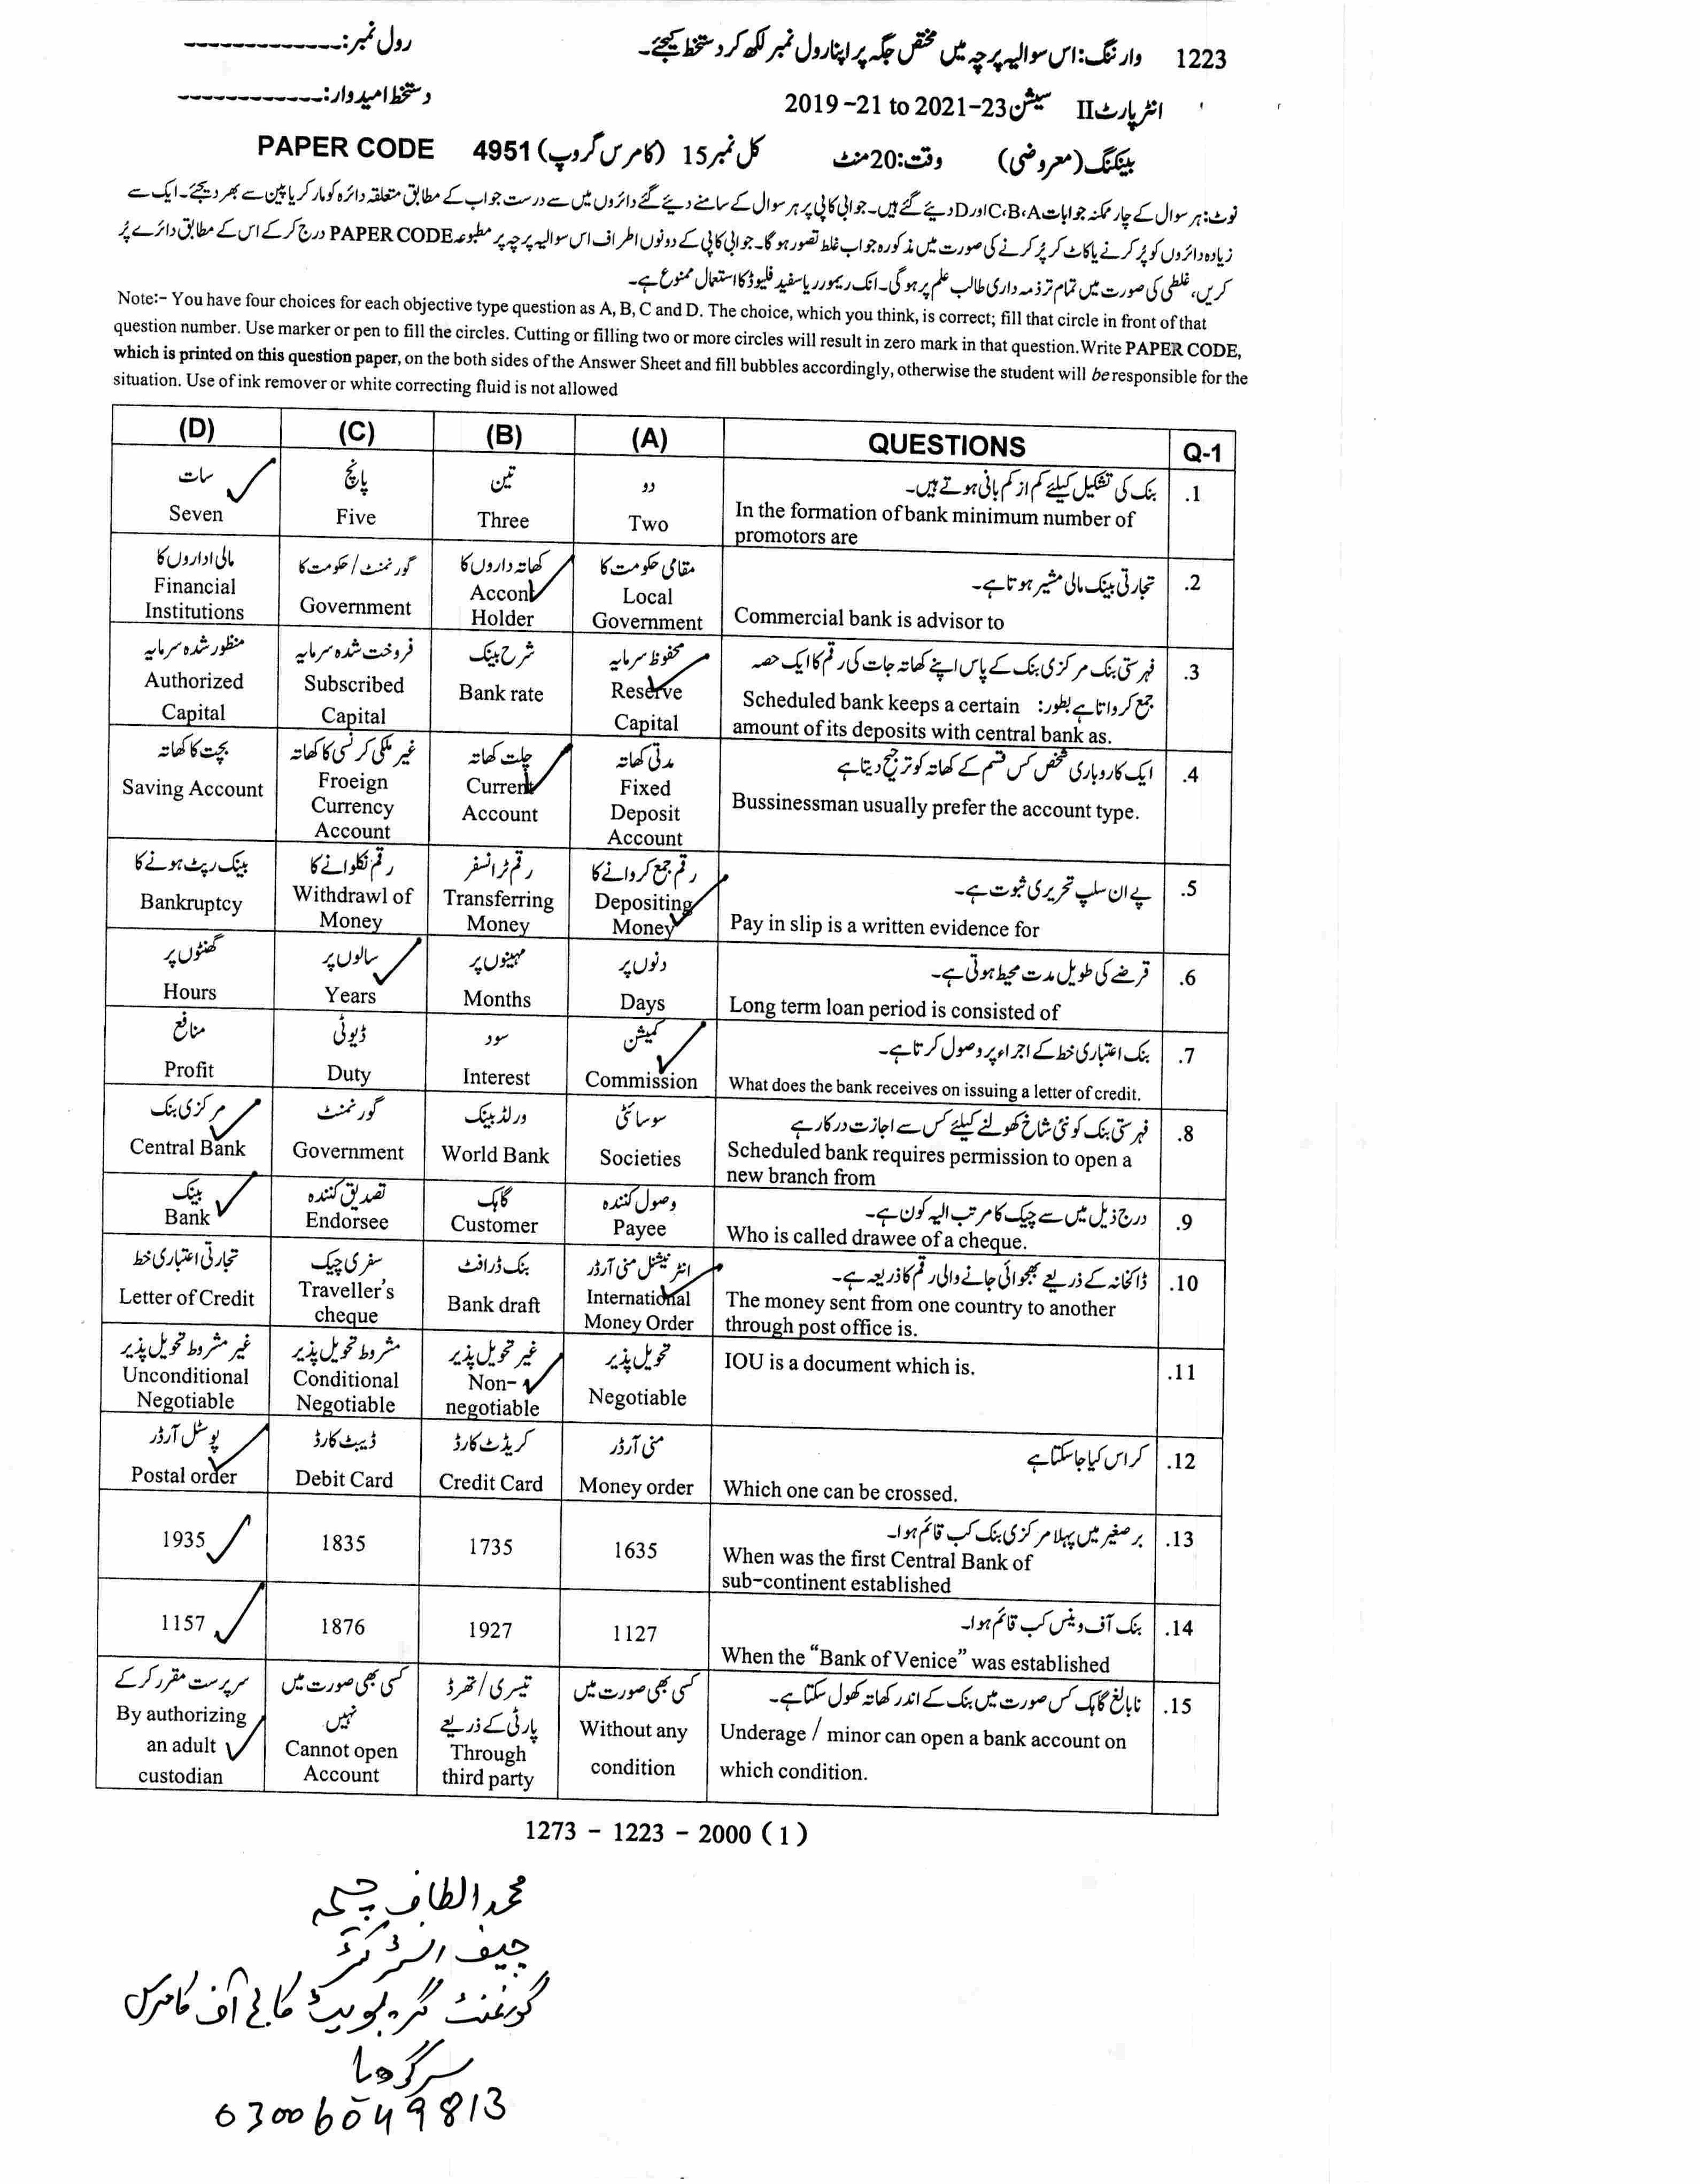 1223 وارننگ: اس سوالیہ پرچہ میں مختص جگہ پر اپنا رول نمبر لکھ کر دستخط کیجئے۔ رول نمبر:-------------
انٹر پارٹ II سیشن 2019-21 to 2021-23 دستخط امیدوار:-------------
بینکنگ (معروضی) وقت: 20 منٹ کل نمبر 15 (کامرس گروپ) PAPER CODE 4951
نوٹ: ہر سوال کے چار ممکنہ جوابات C،B،A اور D دیئے گئے ہیں۔ جوابی کاپی پر ہر سوال کے سامنے دیئے گئے دائروں میں سے درست جواب کے مطابق متعلقہ دائرہ کو مارکر یا پین سے بھر دیجئے۔ ایک سے
زیادہ دائروں کو پُر کرنے یا کاٹ کر پُر کرنے کی صورت میں مذکورہ جواب غلط تصور ہو گا۔ جوابی کاپی کے دونوں اطراف اس سوالیہ پرچہ پر مطبوعہ PAPER CODE درج کر کے اس کے مطابق دائرے پُر
کریں، غلطی کی صورت میں تمام تر ذمہ داری طالب علم پر ہو گی۔ انک ریمور ریا سفید فلیوڈ کا استعمال ممنوع ہے۔
Note:- You have four choices for each objective type question as A, B, C and D. The choice, which you think, is correct; fill that circle in front of that
question number. Use marker or pen to fill the circles. Cutting or filling two or more circles will result in zero mark in that question. Write PAPER CODE,
which is printed on this question paper, on the both sides of the Answer Sheet and fill bubbles accordingly, otherwise the student will be responsible for the
situation. Use of ink remover or white correcting fluid is not allowed
(D) (C) (B) (A) QUESTIONS Q-1
سات پانچ تین دو بنک کی تشکیل کیلئے کم از کم بانی ہوتے ہیں۔ .1
Seven Five Three Two In the formation of bank minimum number of
promotors are
مالی اداروں کا گورنمنٹ/حکومت کا کھاتہ داروں کا مقامی حکومت کا تجارتی بینک مالی مشیر ہوتا ہے۔ .2
Financial Government Accont Local
Institutions Holder Government Commercial bank is advisor to
منظور شدہ سرمایہ فروخت شدہ سرمایہ شرح بینک محفوظ سرمایہ فہرستی بنک مرکزی بنک کے پاس اپنے کھاتہ جات کی رقم کا ایک حصہ .3
Authorized Subscribed Bank rate Reserve Scheduled bank keeps a certain جمع کرواتا ہے بطور:
Capital Capital Capital amount of its deposits with central bank as.
بچت کا کھاتہ غیر ملکی کرنسی کا کھاتہ چلت کھاتہ مدتی کھاتہ ایک کاروباری شخص کس قسم کے کھاتہ کو ترجیح دیتا ہے .4
Saving Account Froeign Current Fixed Bussinessman usually prefer the account type.
Currency Account Deposit
Account Account
بینک رپٹ ہونے کا رقم نکلوانے کا رقم ٹرانسفر رقم جمع کروانے کا پے ان سلپ تحریری ثبوت ہے۔ .5
Bankruptcy Withdrawl of Transferring Depositing
Money Money Money Pay in slip is a written evidence for
گھنٹوں پر سالوں پر مہینوں پر دنوں پر قرضے کی طویل مدت محیط ہوتی ہے۔ .6
Hours Years Months Days Long term loan period is consisted of
منافع ڈیوٹی سود کمیشن بنک اعتباری خط کے اجراء پر وصول کرتا ہے۔ .7
Profit Duty Interest Commission What does the bank receives on issuing a letter of credit.
مرکزی بنک گورنمنٹ ورلڈ بینک سوسائٹی فہرستی بنک کو نئی شاخ کھولنے کیلئے کس سے اجازت درکار ہے .8
Central Bank Government World Bank Societies Scheduled bank requires permission to open a
new branch from
بینک تصدیق کنندہ گاہک وصول کنندہ درج ذیل میں سے چیک کا مرتب الیہ کون ہے۔ .9
Bank Endorsee Customer Payee Who is called drawee of a cheque.
تجارتی اعتباری خط سفری چیک بنک ڈرافٹ انٹرنیشنل منی آرڈر ڈاکخانہ کے ذریعے بھجوائی جانے والی رقم کا ذریعہ ہے۔ .10
Letter of Credit Traveller's Bank draft International The money sent from one country to another
cheque Money Order through post office is.
غیر مشروط تحویل پذیر مشروط تحویل پذیر غیر تحویل پذیر تحویل پذیر IOU is a document which is. .11
Unconditional Conditional Non- Negotiable
Negotiable Negotiable negotiable
پوسٹل آرڈر ڈیبٹ کارڈ کریڈٹ کارڈ منی آرڈر کراس کیا جا سکتا ہے .12
Postal order Debit Card Credit Card Money order Which one can be crossed.
1935 1835 1735 1635 برصغیر میں پہلا مرکزی بنک کب قائم ہوا۔ .13
When was the first Central Bank of
sub-continent established
1157 1876 1927 1127 بنک آف وینس کب قائم ہوا۔ .14
When the "Bank of Venice" was established
سرپرست مقرر کر کے کسی بھی صورت میں تیسری/تھرڈ کسی بھی صورت میں نابالغ گاہک کس صورت میں بنک کے اندر کھاتہ کھول سکتا ہے۔ .15
By authorizing نہیں پارٹی کے ذریعے Without any Underage / minor can open a bank account on
an adult Cannot open Through condition which condition.
custodian Account third party
1273 - 1223 - 2000 (1)
محمد الطاف چیمہ
چیف انسٹرکٹر
گورنمنٹ گریجویٹ کالج آف کامرس
سرگودھا
03006049813